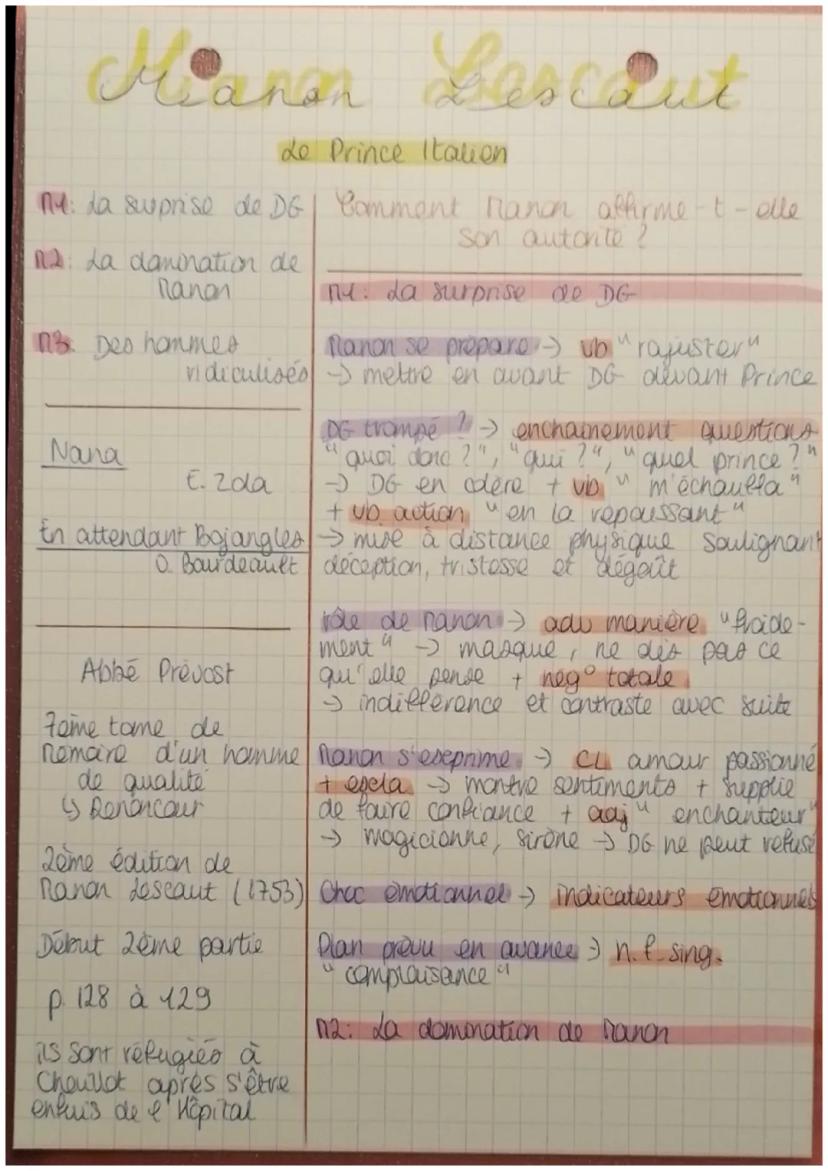 Manon Lescaut
Le Prince Italien
M1: La surprise de DG
M2: La domination de
Manon
M3: Des hommes
ridiculisés
Nana
E. Zola
En attendant Bojangles
O. Bourdeault
Abbé Prévost
7ème tome de
Mémoire d'un homme
de qualité
↳ Renoncour
2ème édition de
Manon Lescaut (1753)
Début 2ème partie
p. 128 à 129
ils sont réfugiés à
Chaillot après s'être
enfuis de l'Hôpital
Comment Manon affirme-t-elle
son autorité ?
M1: La surprise de DG
Manon se prépare → vb "rajuster"
→ mettre en avant DG devant Prince
DG trompé ? → enchaînement questions
"quoi donc ?", "qui ?", "quel prince ?"
→ DG en colère + vb "m'échauffa"
+ vb action "en la repoussant"
→ mise à distance physique soulignant
déception, tristesse et dégoût
rôle de Manon → adv manière "froide-
ment" → masque, ne dis pas ce
qu'elle pense + nég° totale
→ indifférence et contraste avec suite
Manon s'exprime → CL amour passionné
+ excla → montre sentiments + supplie
de faire confiance + adj "enchanteur"
→ magicienne, sirène → DG ne peut refuse
Choc émotionnel → indicateurs émotionnels
Plan prévu en avance → n.f. sing.
"complaisance"
M2: La domination de Manon